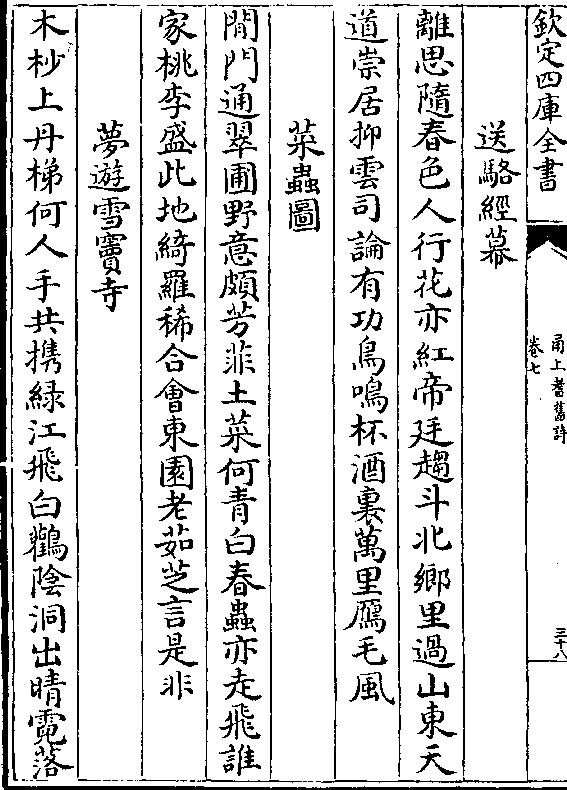 欽定四庫全書
甬上耆舊詩
卷七
三十八
送駱經幕
離思隨春色人行花亦紅帝廷趨斗北鄉里過山東天
道崇居抑雲司論有功鳥鳴杯酒裏萬里鴈毛風
菜蟲圖
閒門通翠圃野意頗芳菲土菜何青白春蟲亦走飛誰
家桃李盛此地綺羅稀合會東園老茹芝言是非
夢遊雪竇寺
木杪上丹梯何人手共携緑江飛白鸛陰洞出晴霓落